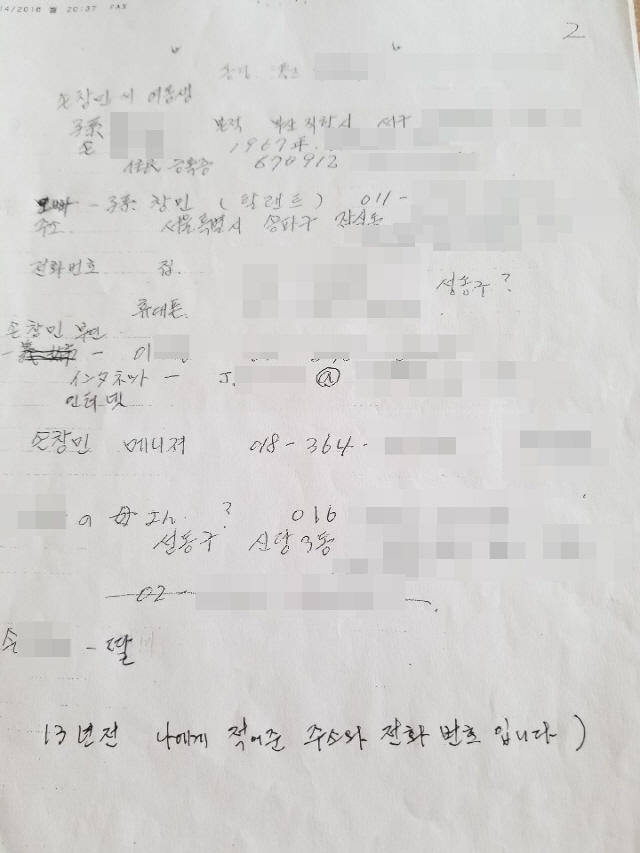 14/2016 월 20:37 FAX
2
손창민 씨 여동생
孫 본적 부산직할시 서구
손 1967年.
주민등록증 670912
오빠 - 孫 창민 (탈렌트) 011-
주소 서울특별시 송파구 잠실동
전화번호 집.
성동구?
휴대폰.
손창민 부인
- 이
インタネット - J. @
인터넷
손창민 메니져 018-364-
の 母さん ? 016
성동구 신당3동
02
손 - 딸
13년전 나에게 적어준 주소와 전화 번호 입니다)